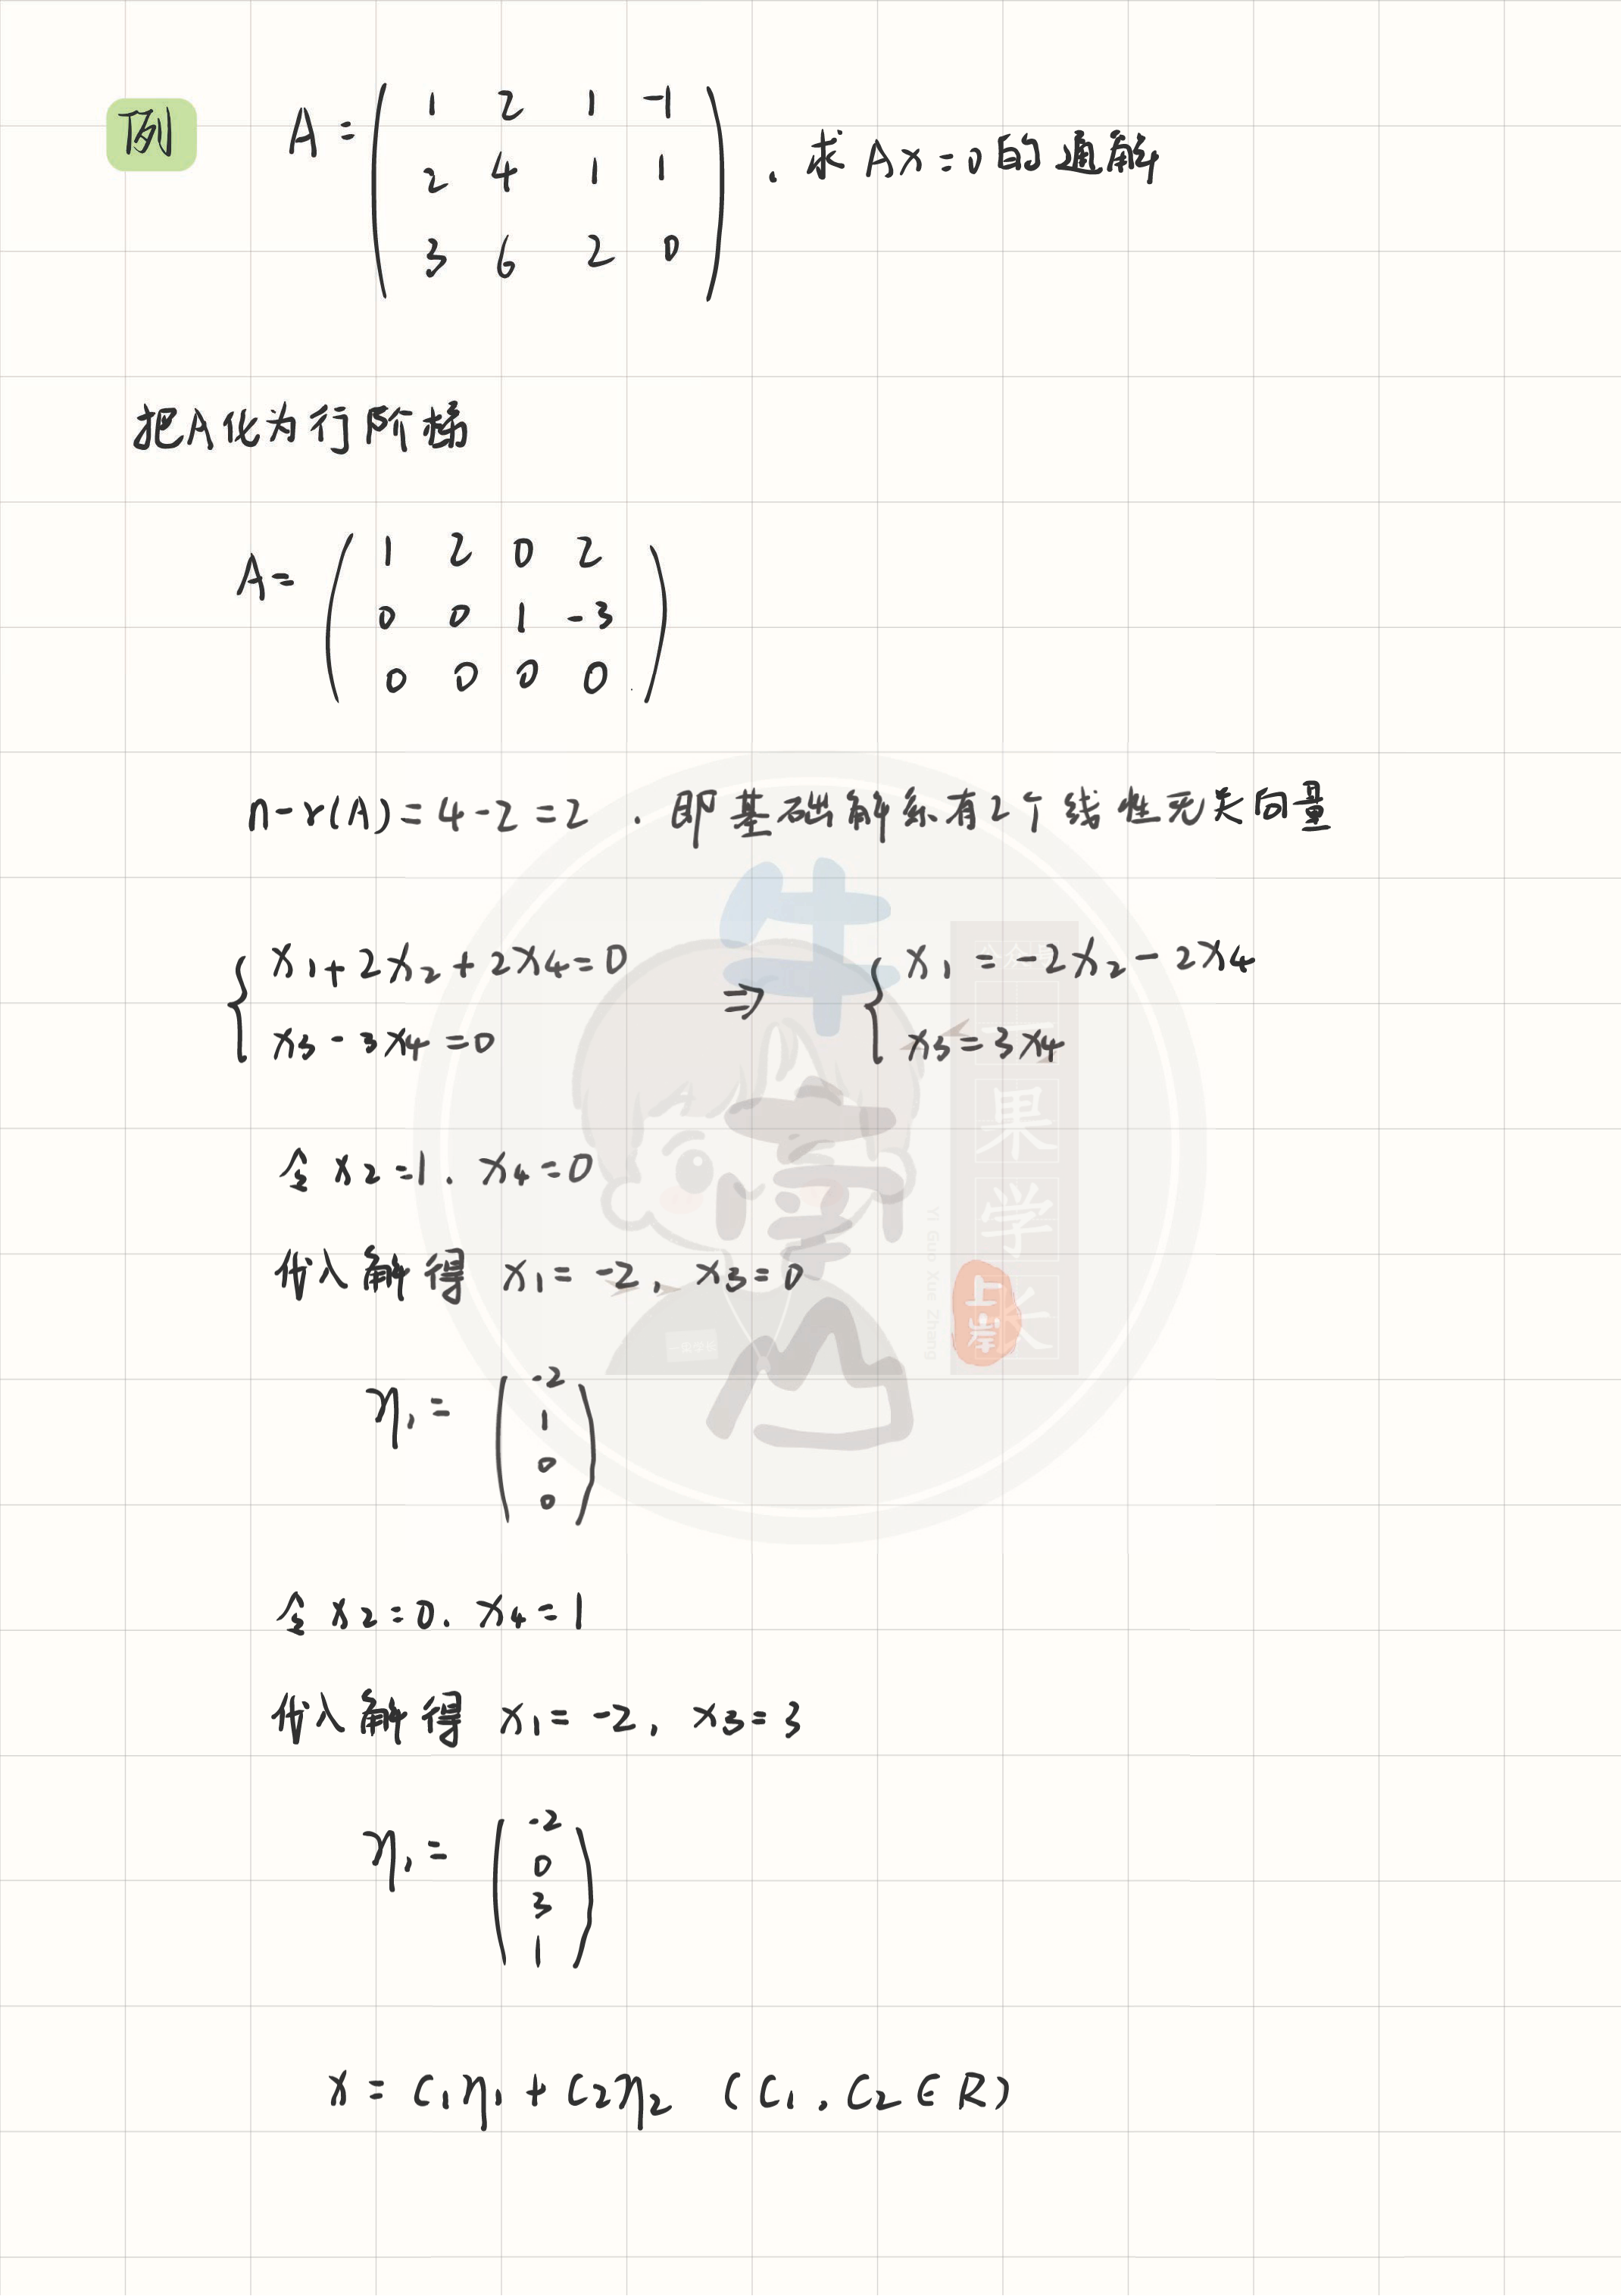 例 A = ( 1 2 1 -1
2 4 1 1
3 6 2 0 ) . 求 Ax=0 的通解
把A化为行阶梯
A= ( 1 2 0 2
0 0 1 -3
0 0 0 0 )
n-r(A)=4-2=2 . 即基础解系有2个线性无关向量
{ x₁+2x₂+2x₄=0 ⇒ { x₁=-2x₂-2x₄
x₃-3x₄=0 x₃=3x₄
令 x₂=1. x₄=0
代入解得 x₁=-2, x₃=0
η₁= ( -2
1
0
0 )
令 x₂=0. x₄=1
代入解得 x₁=-2, x₃=3
η₁= ( -2
0
3
1 )
x = c₁η₁+c₂η₂ (c₁,c₂∈R)
牛
一果学长
Yi Guo Xue Zhang
上岸